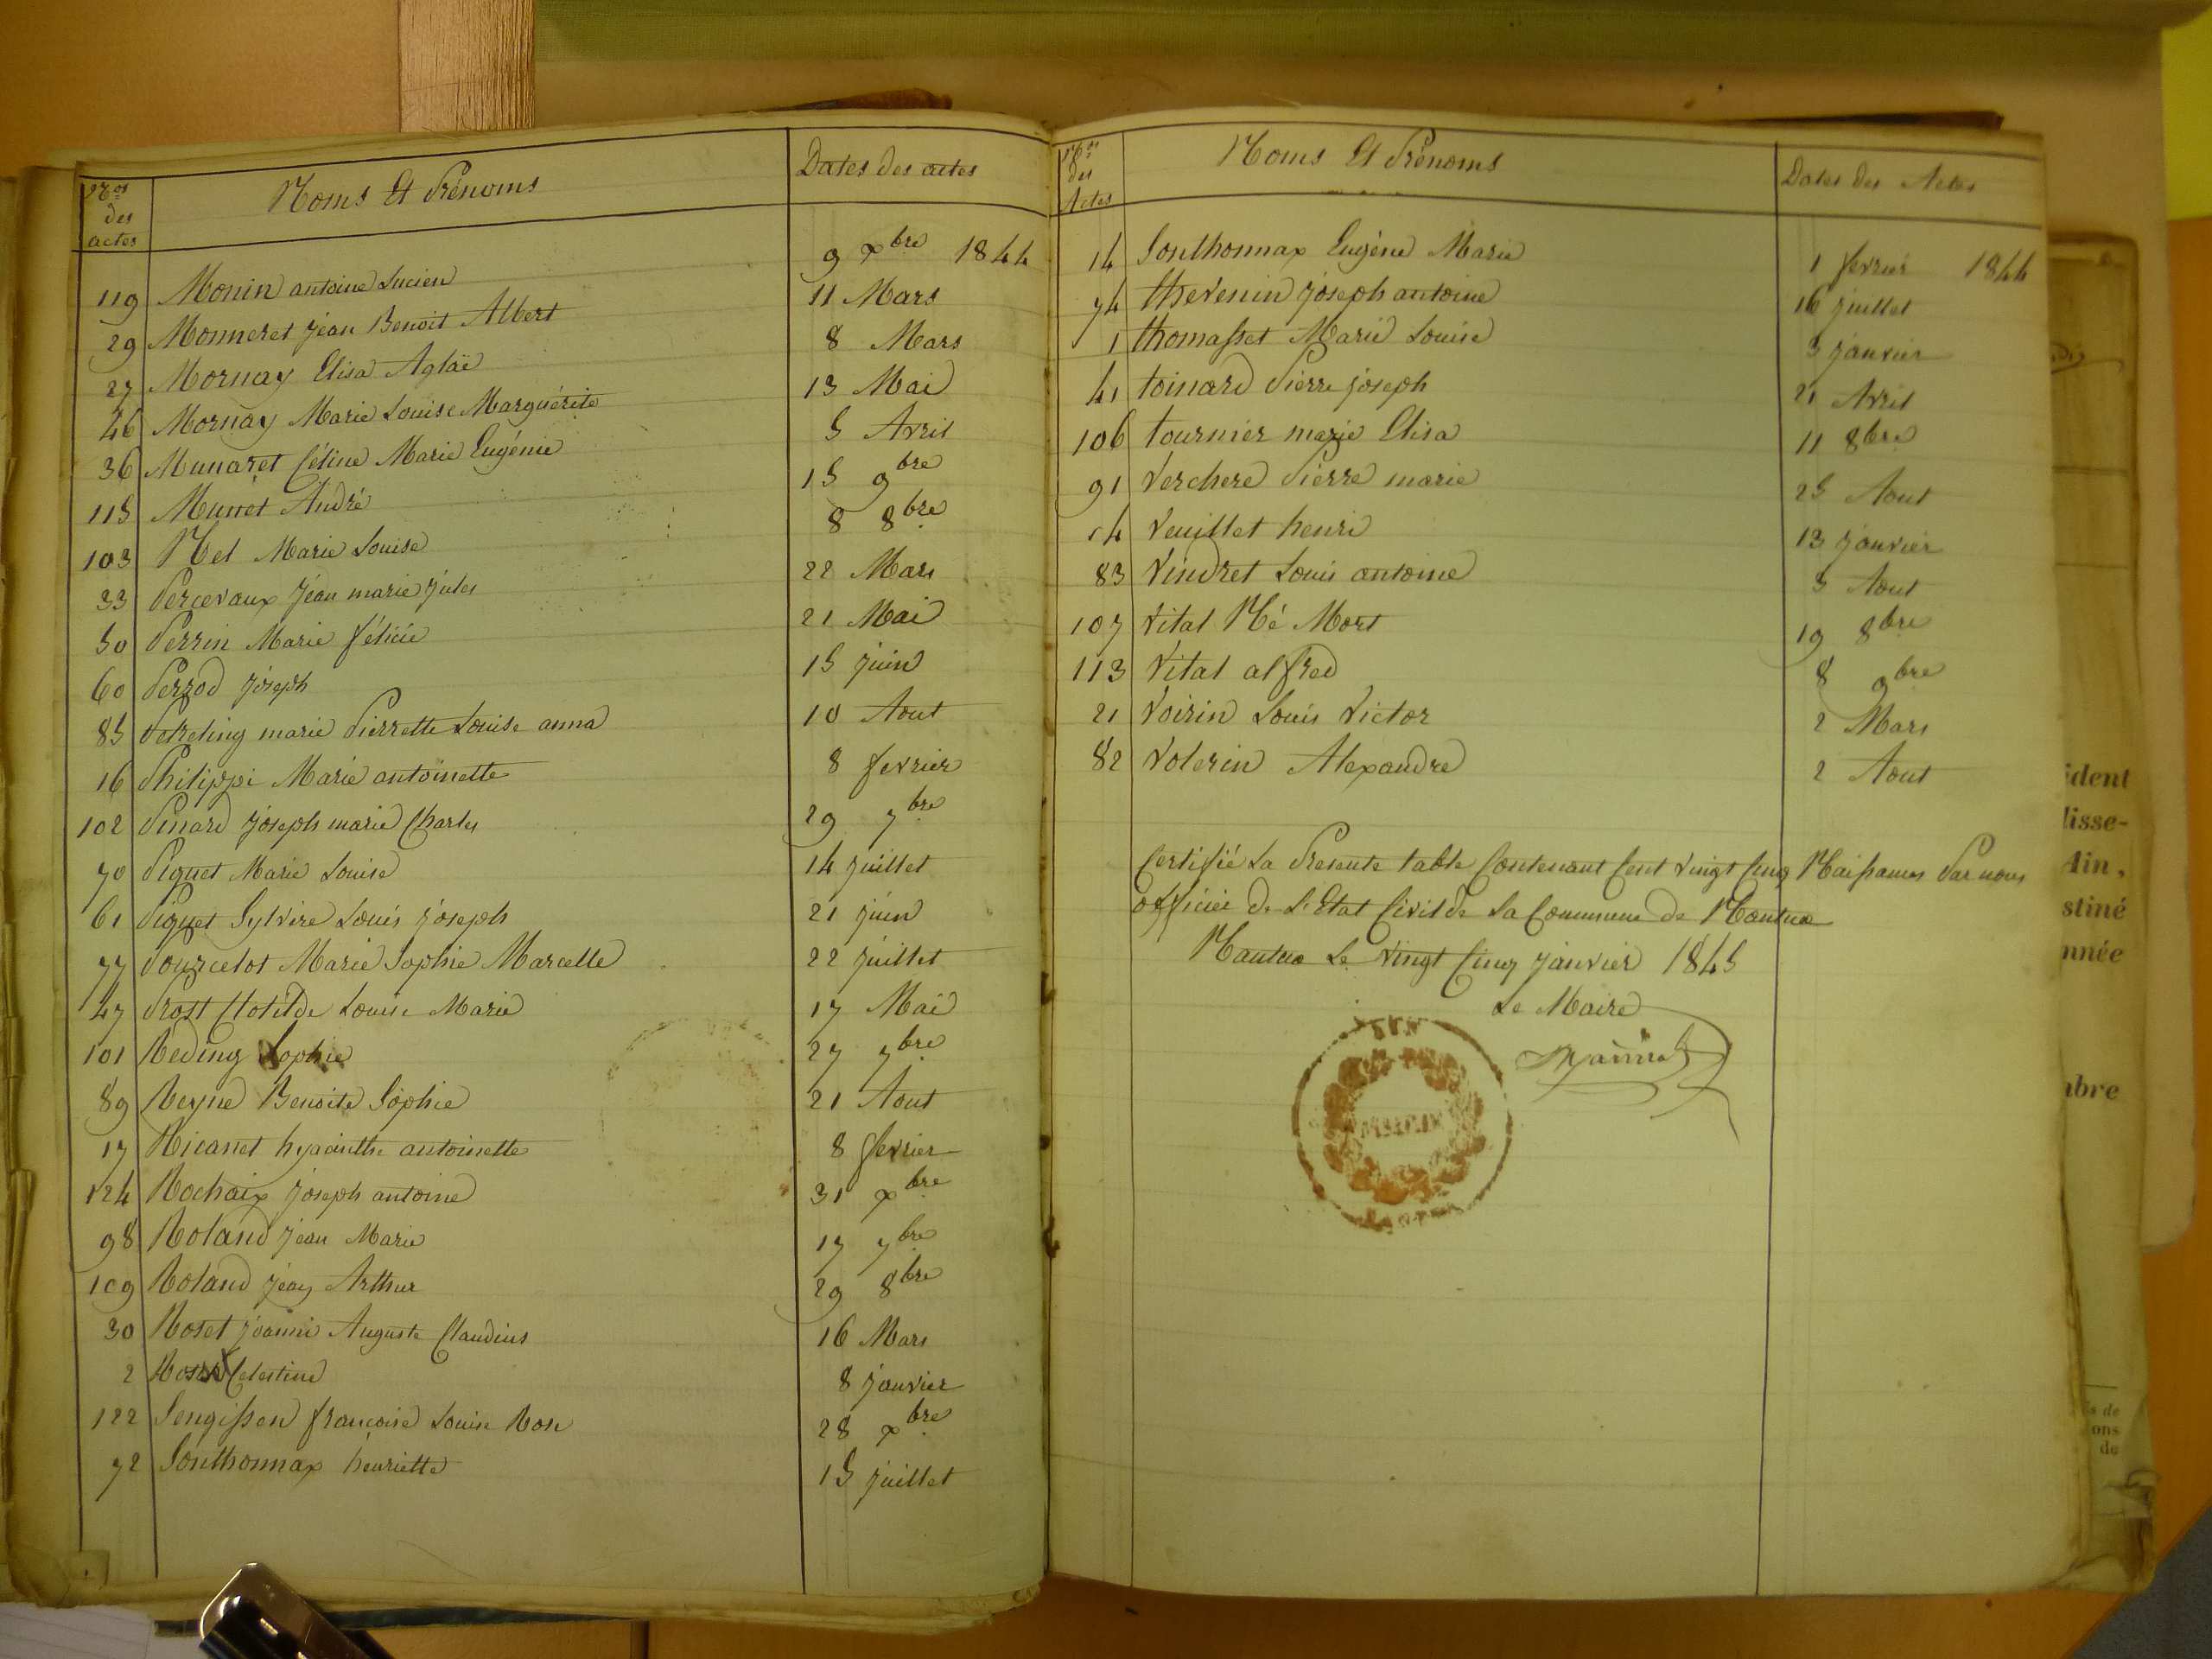 Nos des actes | Noms Et Prénoms | Dates des actes
119 Monin antoine Lucien 9 xbre 1844
29 Monneret jean Benoit Albert 11 Mars
27 Mornay Elisa Aglaë 8 Mars
46 Mornay Marie Louise Marguérite 13 Mai
36 Munaret Céline Marie Eugénie 5 Avril
115 Munet André 15 9bre
103 Nel Marie Louise 8 8bre
33 Percevaux jean marie jules 22 Mars
50 Perrin Marie félicie 21 Mai
60 Perrod joseph 15 juin
85 Petreling marie Pierrette Louise anna 10 Aout
16 Philippi Marie antoinette 8 fevrier
102 Pinard joseph marie Charles 29 7bre
70 Piquet Marie Louise 14 juillet
61 Piquet Sylvire Louis joseph 21 juin
77 Pourcelot Marie Sophie Marcelle 22 juillet
47 Prost Clotilde Louise Marie 17 Mai
101 Reding Sophie 27 7bre
89 Reyne Benoite Sophie 21 Aout
17 Ricanet hyacinthe antoinette 8 fevrier
124 Rochaix joseph antoine 31 xbre
98 Roland jean Marie 17 7bre
109 Roland jean Arthur 29 8bre
30 Roset Auguste Claudius 16 Mars
2 Celestine 8 janvier
122 Sengissen françoise Louise Rose 28 xbre
72 Sonthonnax henriette 15 juillet
Nos des Actes | Noms Et Prénoms | Dates des Actes
14 Sonthonnax Eugène Marie 1 fevrier 1844
74 thevenin joseph antoine 16 juillet
1 thomasset Marie Louise 3 janvier
41 toinard Pierre joseph 21 Avril
106 tournier marie Elisa 11 8bre
91 Verchere Pierre marie 25 Aout
4 Veuillet henri 13 janvier
83 Vindret Louis antoine 3 Aout
107 Vital Né Mort 19 8bre
113 Vital alfred 8 9bre
21 Voirin Louis Victor 2 Mars
82 Volerin Alexandre 2 Aout
Certifié La Presente table Contenant Cent Vingt Cinq Naissances Par nous
officier de L'Etat Civil de La Commune de Nantua
Nantua Le Vingt Cinq janvier 1845
Le Maire
ident
lisse-
Ain,
stiné
nnée
bre
ons
de